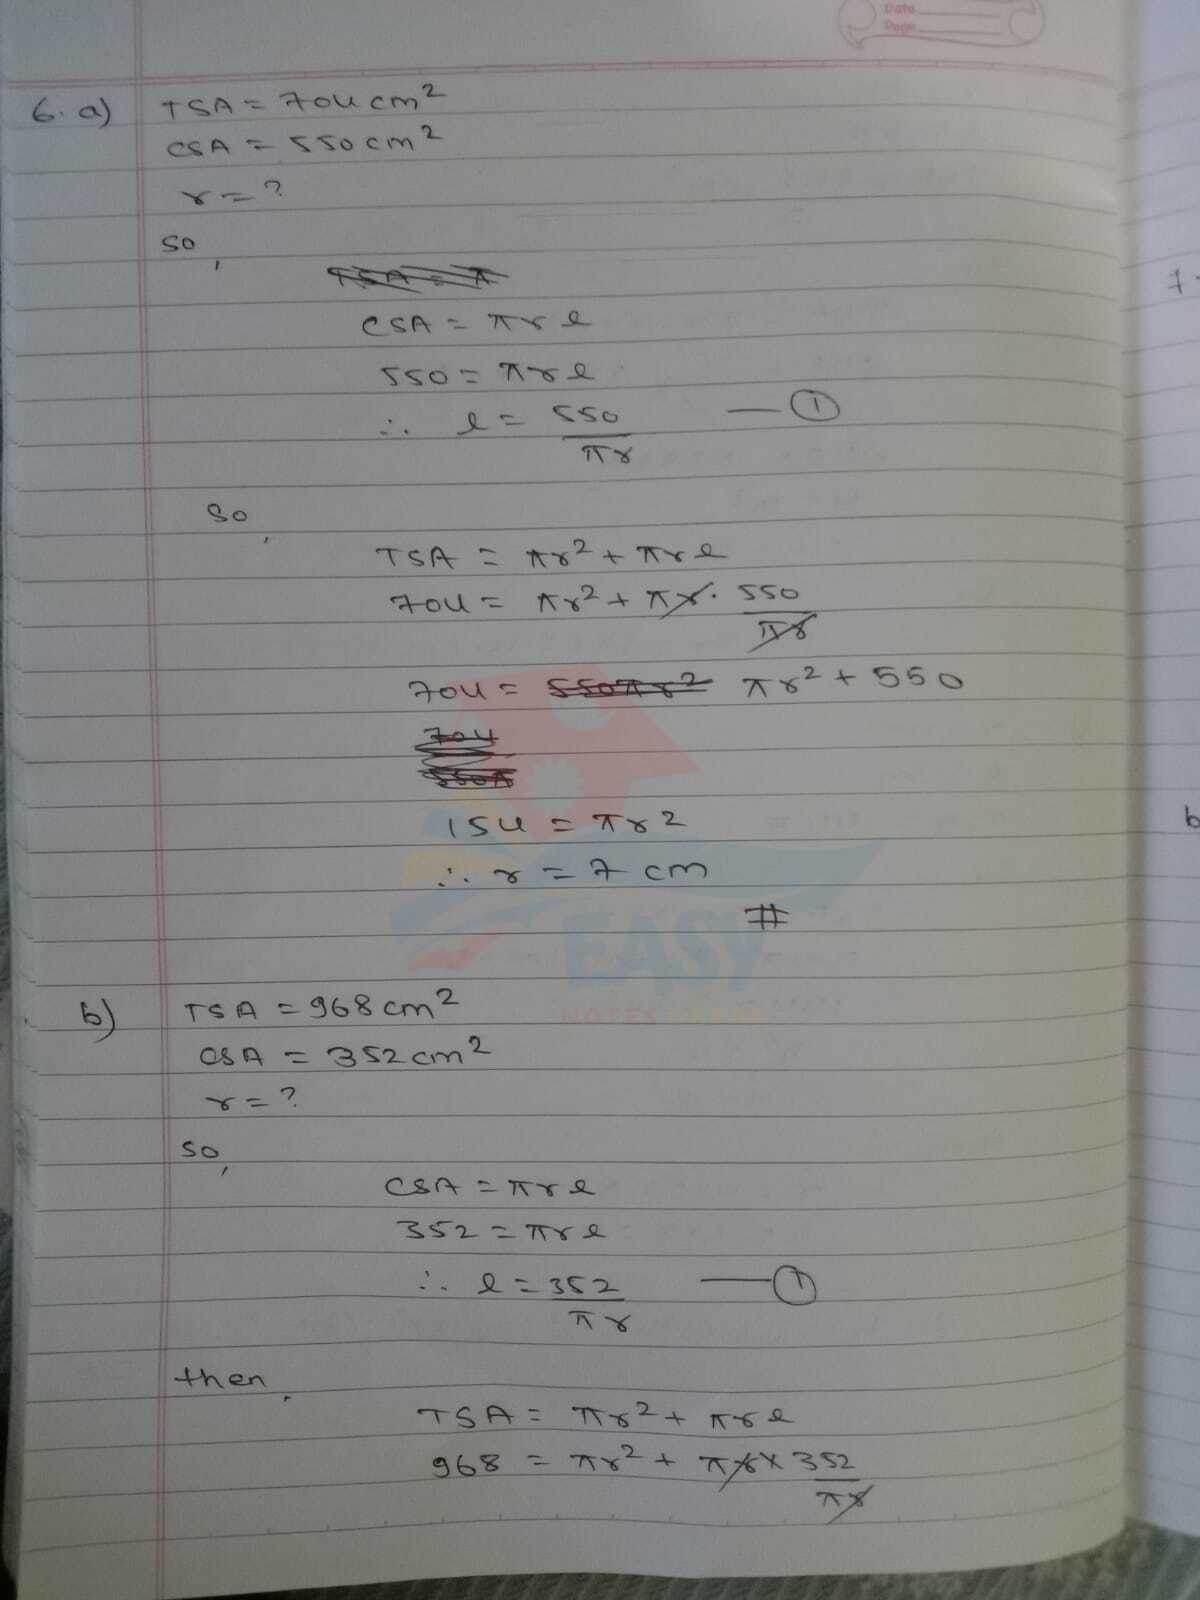 Date
Page
6. a) TSA = 704 cm²
CSA = 550 cm²
r = ?
so,
TSA = π
CSA = πrl
550 = πrl
∴ l = 550/πr — ①
So,
TSA = πr² + πrl
704 = πr² + πr. 550/πr
704 = 550πr² πr² + 550
704
154 = πr²
∴ r = 7 cm
#
b) TSA = 968 cm²
CSA = 352 cm²
r = ?
so,
CSA = πrl
352 = πrl
∴ l = 352/πr — ①
then,
TSA = πr² + πrl
968 = πr² + πr × 352/πr
7.
b
EASY
NOTES